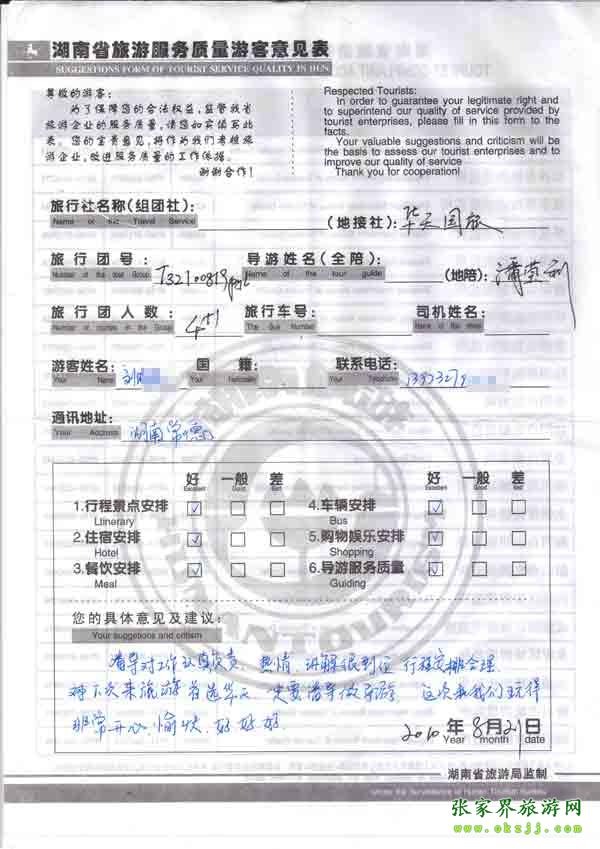 湖南省旅游服务质量游客意见表
SUGGESTIONS FORM OF TOURIST SERVICE QUALITY IN HUN
尊敬的游客：
为了保障您的合法权益，监督我省
旅游企业的服务质量，请您如实填写此
表。您的宝贵意见，将作为我们考核旅
游企业，改进服务质量的工作依据。
谢谢合作！
Respected Tourists:
In order to guarantee your legitimate right and
to superintend our quality of service provided by
tourist enterprises, please fill in this form to the
facts.
Your valuable suggestions and criticism will
be the basis to assess our tourist enterprises and to
improve our quality of service
Thank you for cooperation!
旅行社名称(组团社)： (地接社)：华天国旅
Name of the Travel Service
旅行团号： T32100819 导游姓名(全陪)： (地陪)：
Number of the tour Group Name of the tour guide
旅行团人数： 4+1 旅行车号： 司机姓名：
Number of tourists in the Group The Bus Number Name of the driver
游客姓名： 刘 国籍： 联系电话： 1397327
Your Name Your Nationality Your Telephone
通讯地址： 湖南常德
Your Address
好 一般 差 好 一般 差
Excellent Good Bad Excellent Good Bad
1.行程景点安排 ☑ □ □ 4.车辆安排 ☑ □ □
Ltinerary Bus
2.住宿安排 ☑ □ □ 5.购物娱乐安排 ☑ □ □
Hotel Shopping
3.餐饮安排 ☑ □ □ 6.导游服务质量 ☑ □ □
Meal Guiding
您的具体意见及建议：
Your suggetions and critism
导对工作认真负责 热情 讲解很到位 行程安排合理
下次来旅游首选华天 还要 导做导游 这次来我们玩得
非常开心、愉快、好好好
2010年8月21日
Year month date
湖南省旅游局监制
Under the Surveillance of Hunan Tourism Bureau
张家界旅游网
www.okzjj.com